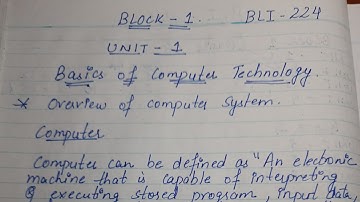 BLOCK - 1. BLI - 224
UNIT - 1
Basics of Computer Technology.
* Overview of computer System.
Computer
Computer can be defined as "An electronic
machine that is capable of interpreting
& executing stored program, input data,